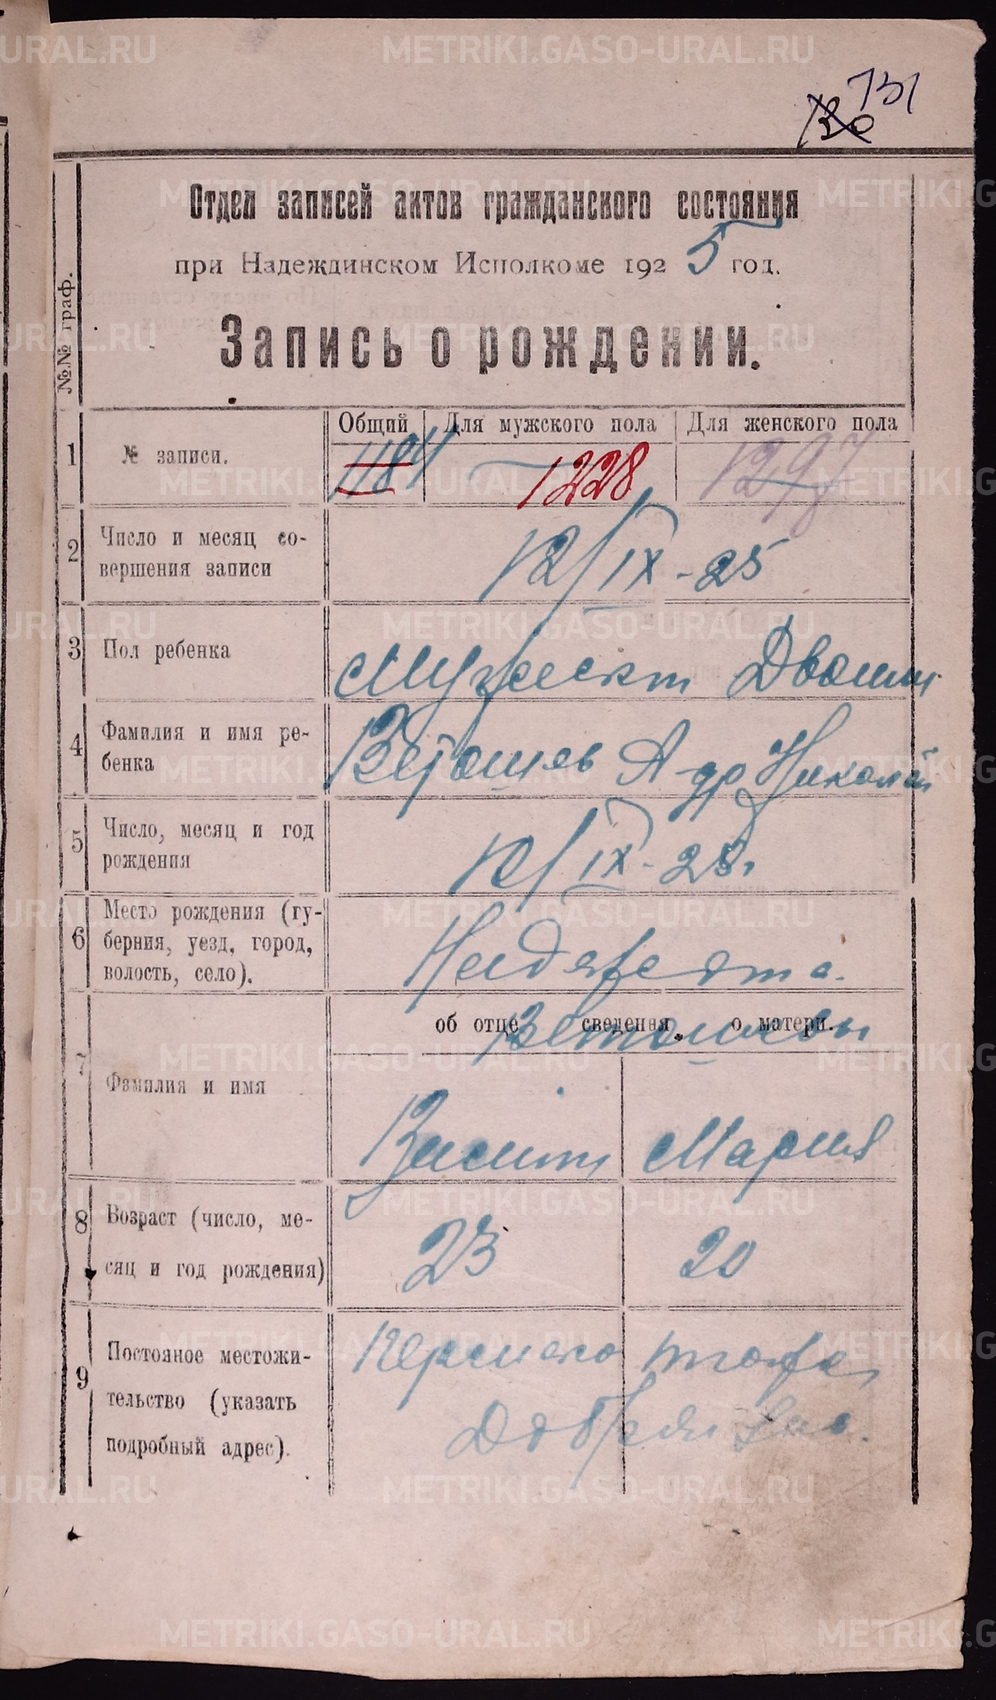 131
Отдел записей актов гражданского состояния
при Надеждинском Исполкоме 1925 год.
Запись о рождении.
№№ граф.
Общий Для мужского пола Для женского пола
1 № записи. 1184 1228
2 Число и месяц со-
вершения записи
12/IX-25
3 Пол ребенка
Мужеск
4 Фамилия и имя ре-
бенка
А-др Николай
5 Число, месяц и год
рождения
12/IX-25г.
6 Место рождения (гу-
берния, уезд, город,
волость, село).
об отце сведения о матери.
7 Фамилия и имя
Мария
8 Возраст (число, ме-
сяц и год рождения)
23 20
9 Постояное местожи-
тельство (указать
подробный адрес).
METRIKI.GASO-URAL.RU